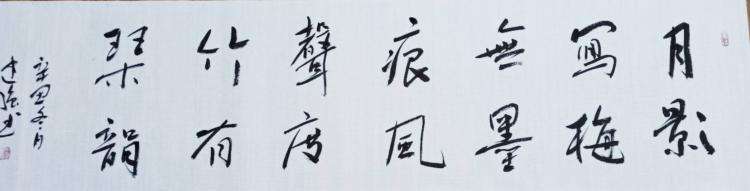 月影
寫梅
無墨
痕風
聲度
竹有
琹韻
辛丑冬月
书